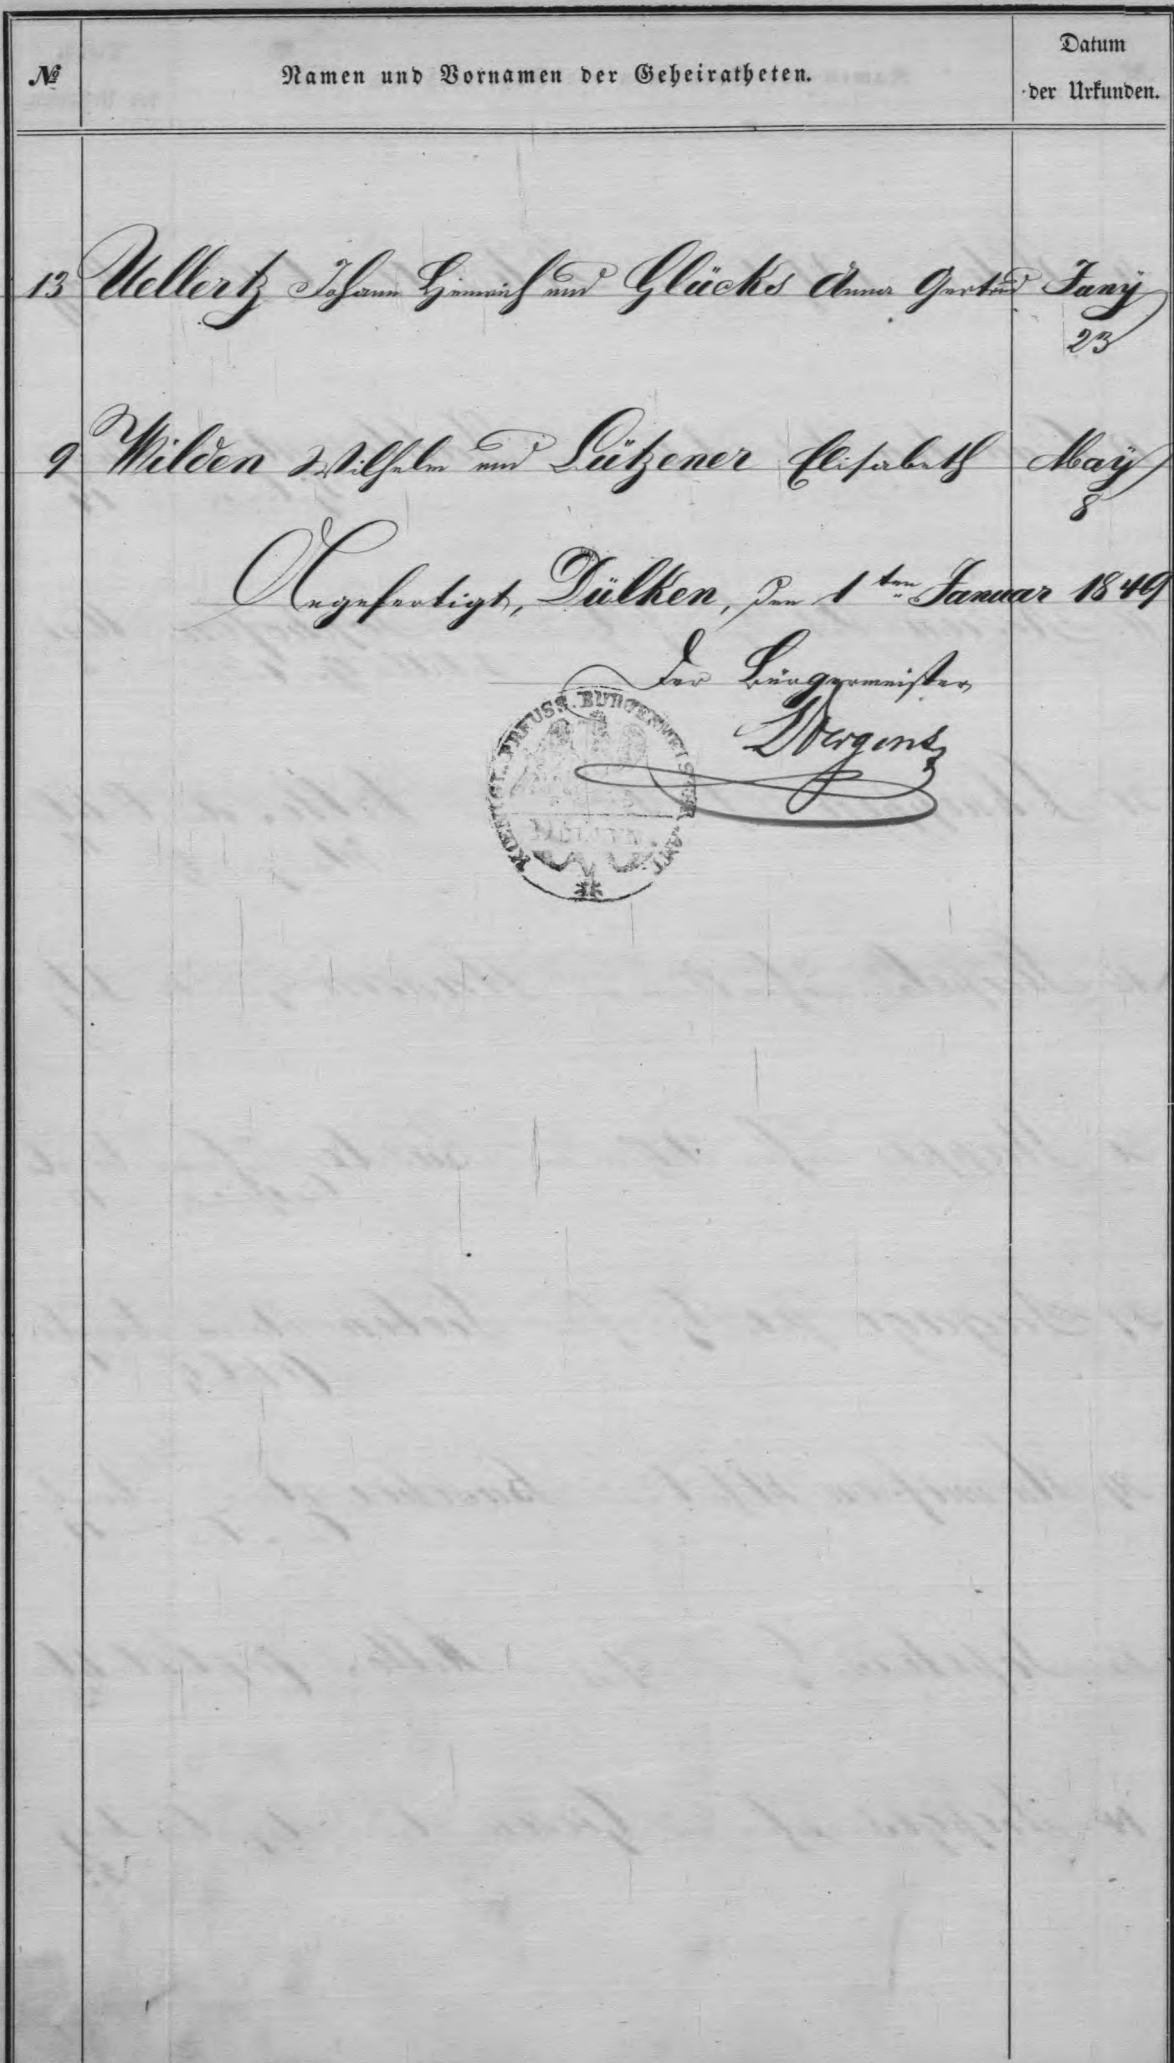 № Namen und Vornamen der Geheiratheten. Datum der Urkunden.
13 Uellertz Johann Heinrich und Glücks Anna Gertrud Juny
23
9 Wilden Wilhelm und Lützener Elisabeth May
8
Angefertigt, Dülken, den 1ten Januar 1849
Der Bürgermeister
KOENIGL. PREUSS. BURGERMEISTER AMT.